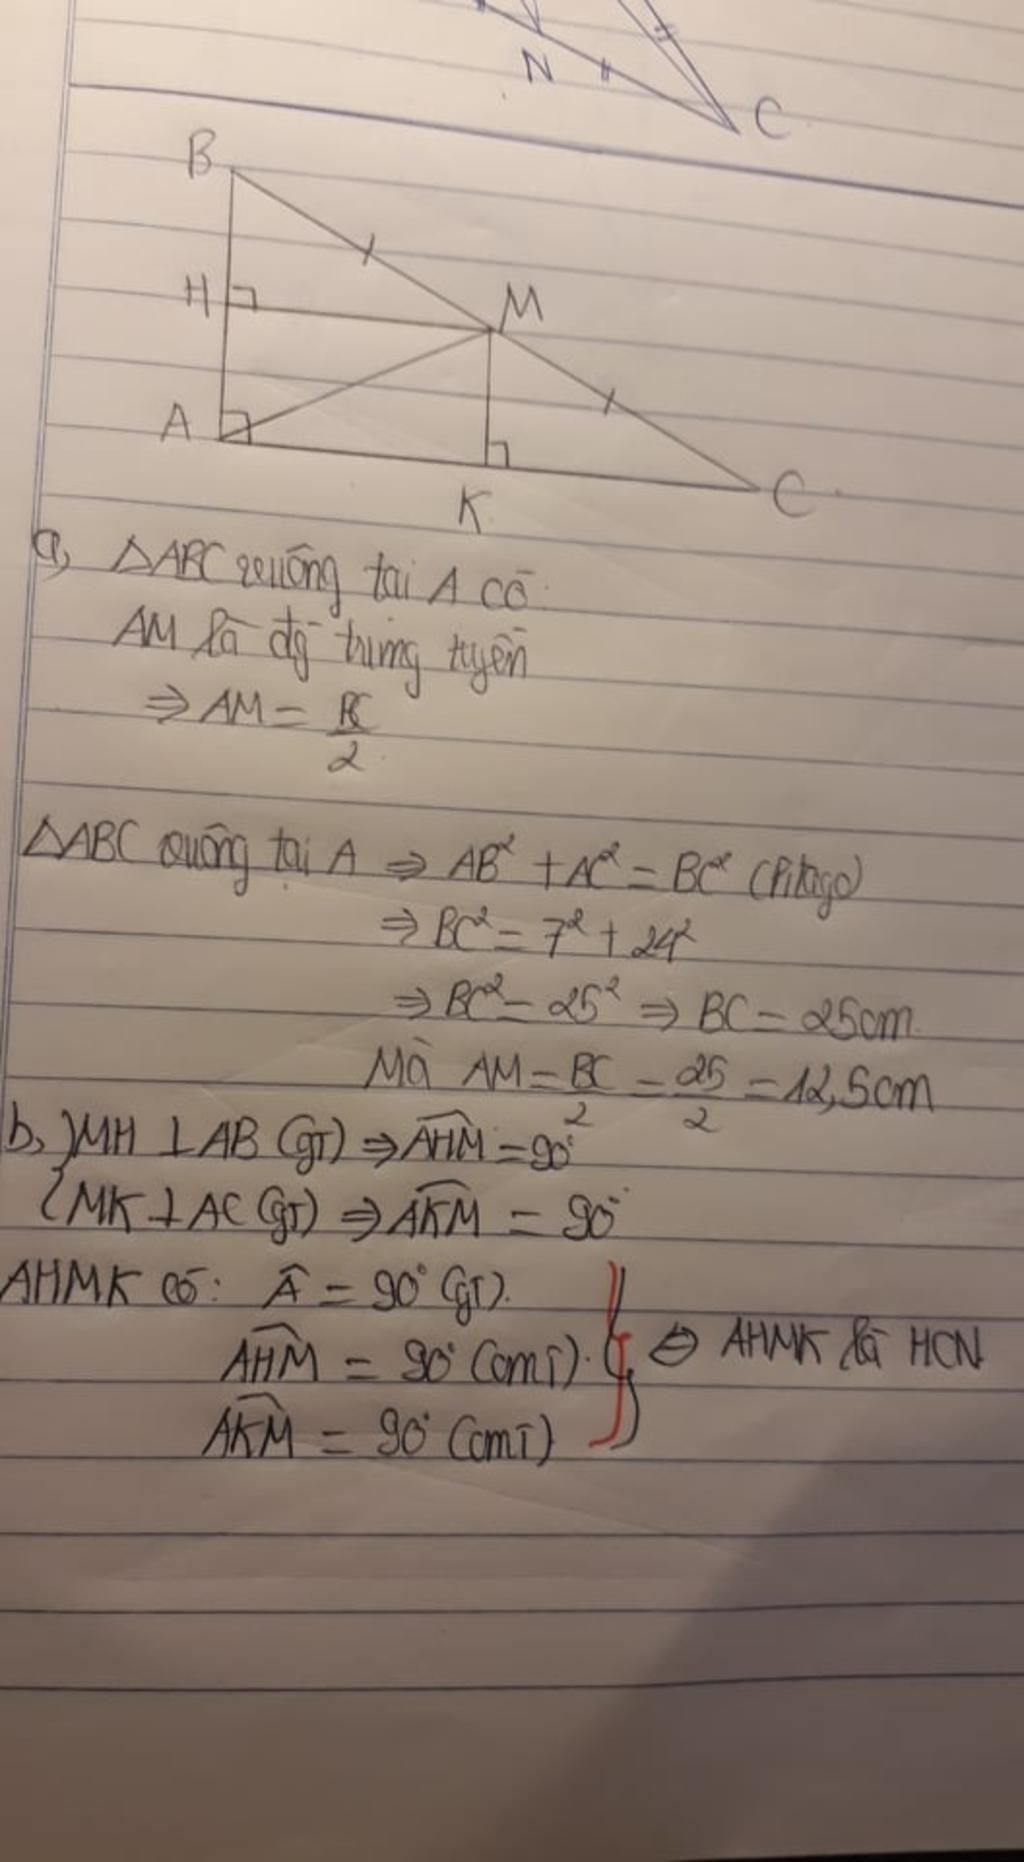 N
C
B
H
M
A
K
C
a, △ABC vuông tại A có:
AM là đg trung tuyến
⇒ AM = BC/2
△ABC vuông tại A ⇒ AB² + AC² = BC² (Pitago)
⇒ BC² = 7² + 24²
⇒ BC² = 25² ⇒ BC = 25cm
Mà AM = BC/2 = 25/2 = 12,5cm
b, } MH ⊥ AB (GT) ⇒ \widehat{AHM} = 90°
{ MK ⊥ AC (GT) ⇒ \widehat{AKM} = 90°
AHMK có: \widehat{A} = 90° (GT).
\widehat{AHM} = 90° (cmT).
\widehat{AKM} = 90° (cmT)
} ⇒ AHMK là HCN